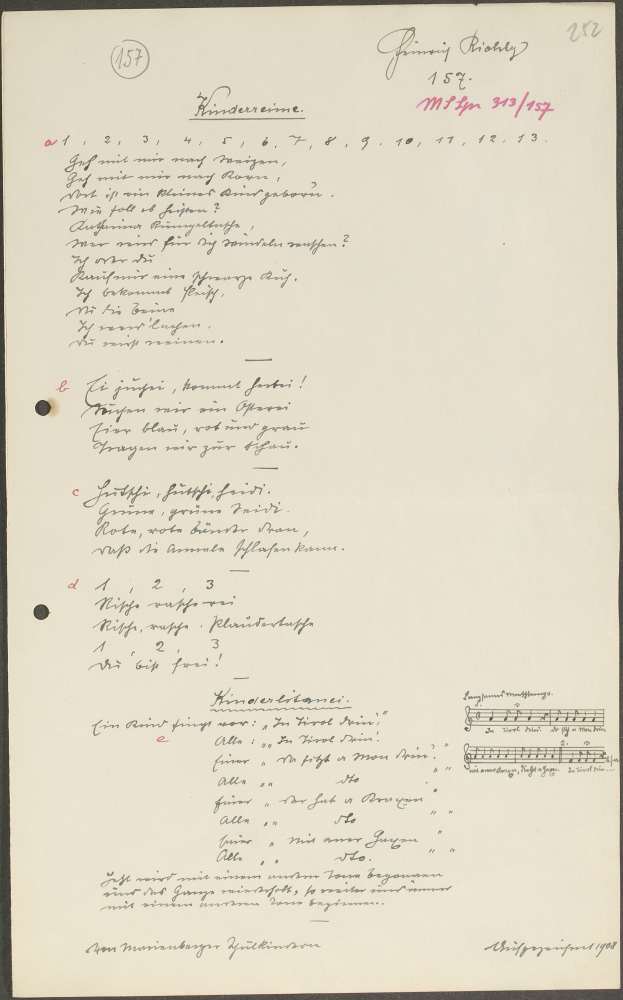 157
252
Heinrich
157.
MS Spr 313/157
Kinderreime.
a 1, 2, 3, 4, 5, 6, 7, 8, 9, 10, 11, 12, 13.
Geh mit mir nach Weizen,
Geh mit mir nach Korn,
Dort ist ein kleines Kind geborn.
Wie soll es heißen?
Katharina Rumpeltasche,
Wer wird für dich Windeln waschen?
Ich oder du
Kauf mir eine schwarze Kuh.
Ich bekomme Fleisch,
Du die Beine
Ich werd' lachen.
Du wirst weinen.
b Ei juchei, kommt herbei!
Suchen wir ein Osterei
Hier blau, rot und grau
Tragen wir zur Schau.
c Hutschi, hutschi, heidi.
Grüne, grüne Seidi.
Rote, rote Bänder dran,
Daß die Annele schlafen kann.
d 1, 2, 3
Rische rasche rei
Rische, rasche. Plaudertasche
1, 2, 3
Du bist frei!
Kinderlitanei.
e Ein Kind singt vor: "In Tirol drin."
Alle: "In Tirol drin."
Einer " Da sitzt a Mon drin." " "
Alle " " dto
Einer " Der hat a Kraxen " " "
Alle " " dto
Einer " Mit aner Haxen " " "
Alle " " dto.
Jetzt wird mit einem andern Tone begonnen
und das Ganze wiederholt, so weiter und immer
mit einem anderen Tone beginnen.
In Tirol drin. Do sitzt a Mon drin
mit aner In Tirol drin
Von Marienberger Schulkindern
Aufgezeichnet 1908